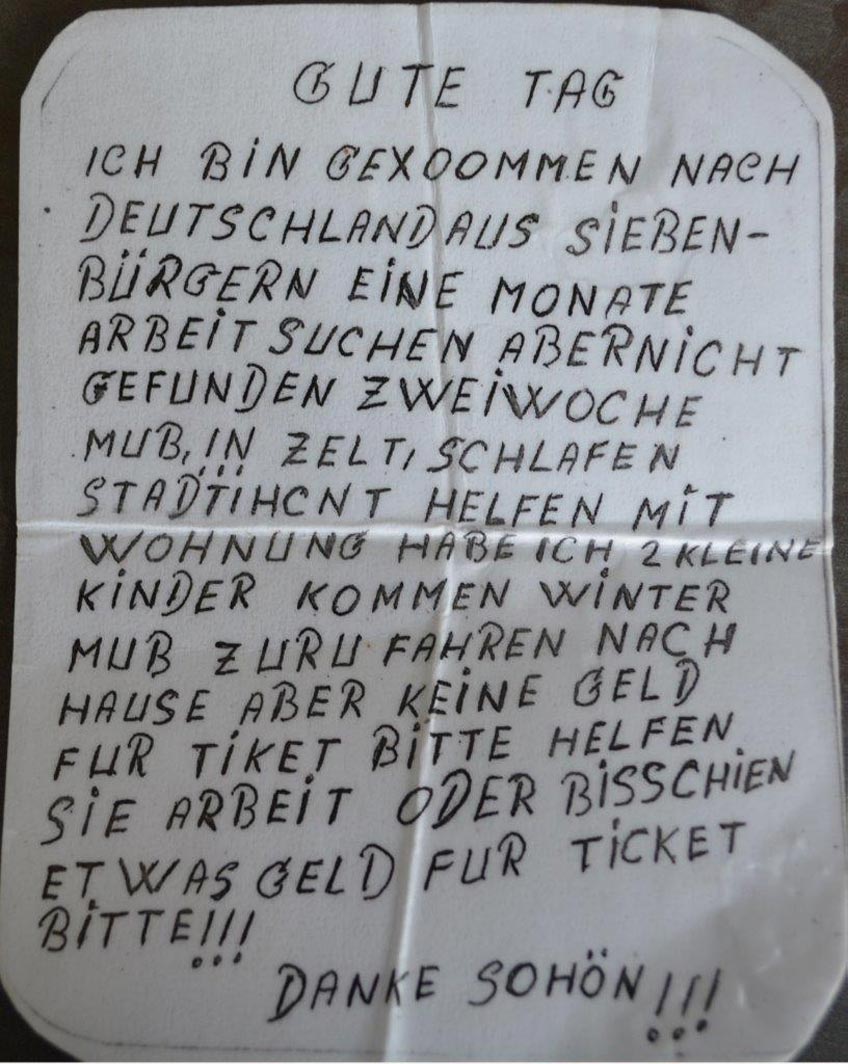 GUTE TAG
ICH BIN GEXOOMMEN NACH
DEUTSCHLAND AUS SIEBEN-
BÜRGERN EINE MONATE
ARBEIT SUCHEN ABERNICHT
GEFUNDEN ZWEIWOCHE
MUß, IN ZELT, SCHLAFEN
STADTIHCNT HELFEN MIT
WOHNUNG HABE ICH 2 KLEINE
KINDER KOMMEN WINTER
MUß ZURU FAHREN NACH
HAUSE ABER KEINE GELD
FUR TIKET BITTE HELFEN
SIE ARBEIT ODER BISSCHIEN
ETWAS GELD FUR TICKET
BITTE!!!
DANKE SOHÖN!!!